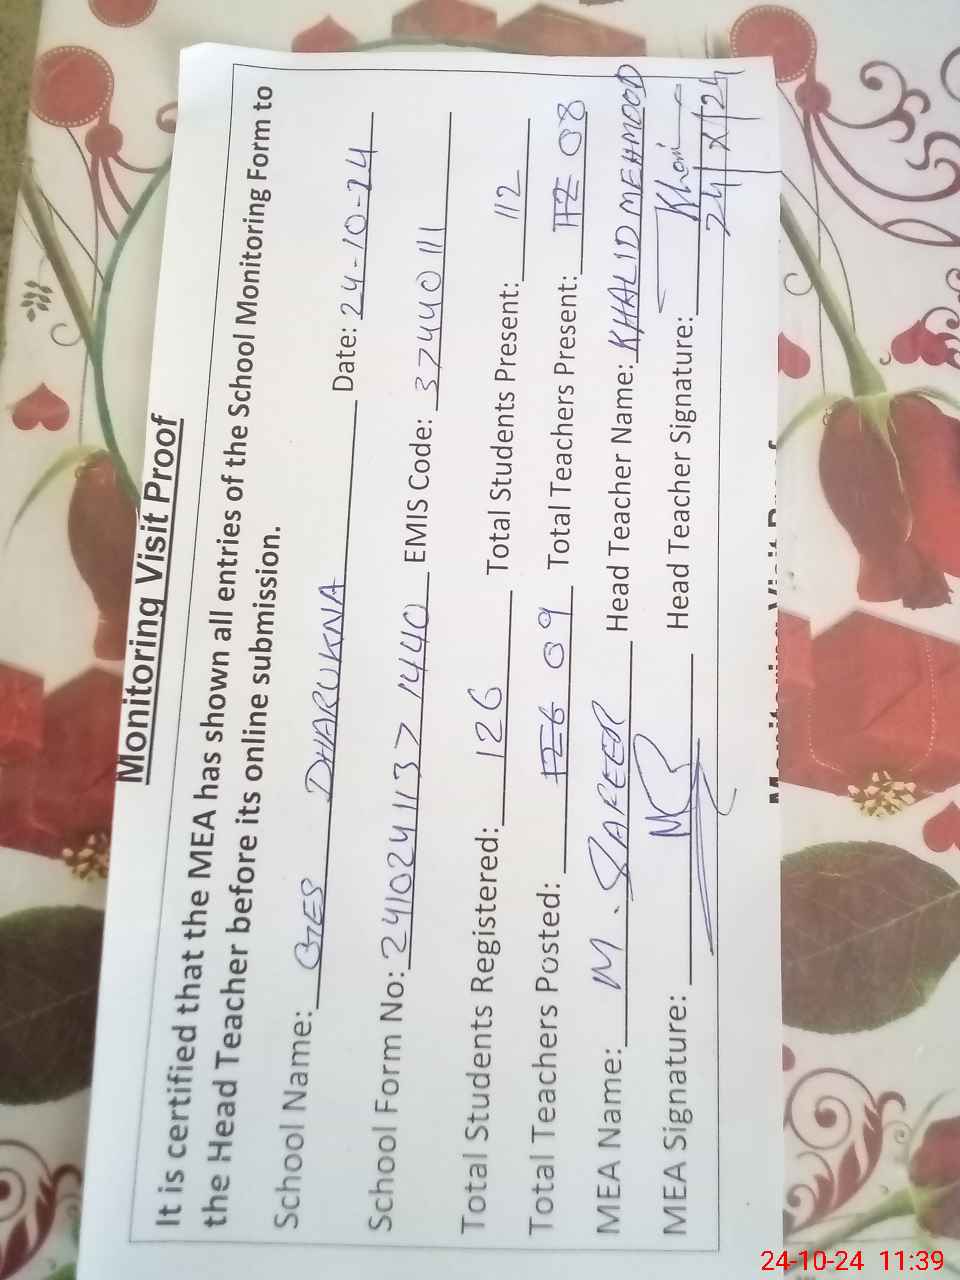 Monitoring Visit Proof
It is certified that the MEA has shown all entries of the School Monitoring Form to
the Head Teacher before its online submission.
School Name: GES DHARUKNA Date: 24-10-24
School Form No: 2410241137 1440 EMIS Code: 37440111
Total Students Registered: 126 Total Students Present: 112
Total Teachers Posted: 126 09 Total Teachers Present: 112 08
MEA Name: M. Head Teacher Name: KHALID MEHMOOD
MEA Signature: Head Teacher Signature:
24/X/24
24-10-24 11:39